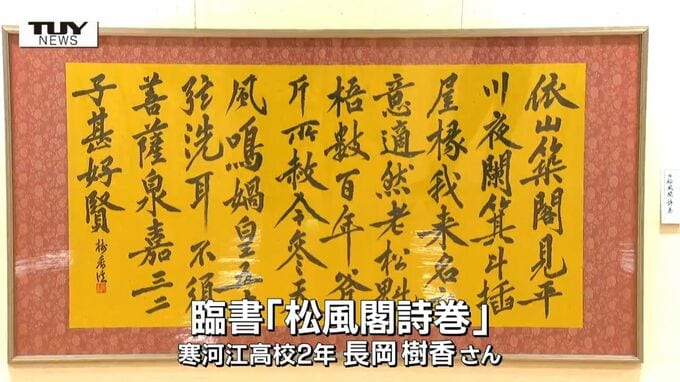 TUY
NEWS
依山築閣見平
川夜闌箕斗插
屋椽我来名之
意適然老松魁
梧数百年斧
斤所赦今参天
風鳴媧皇五十
弦洗耳不須
菩薩泉嘉三二
子甚好賢
松風閣詩巻
臨書「松風閣詩巻」
寒河江高校2年 長岡 樹香さん